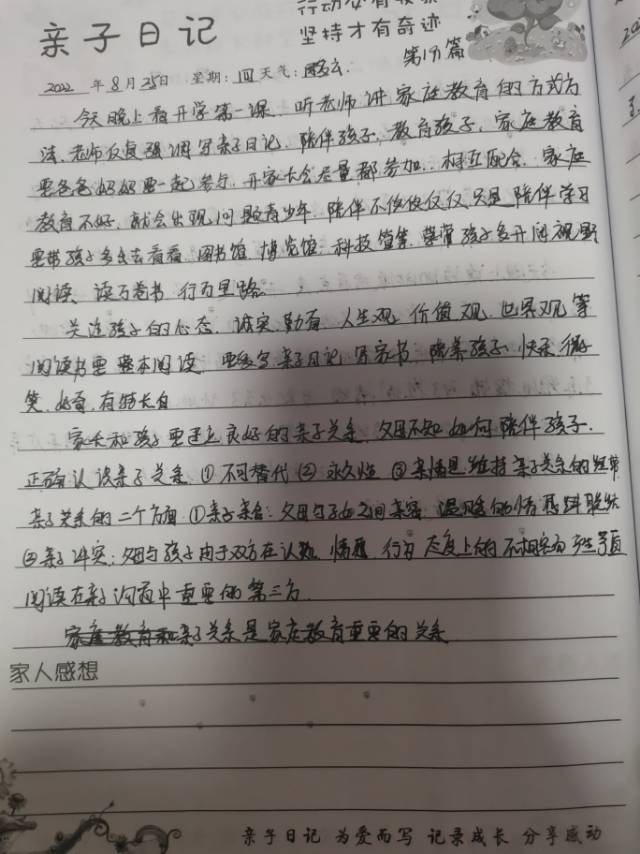 亲子日记
坚持才有奇迹
第19篇
2022年8月25日 星期:四 天气:多云
今天晚上看开学第一课,听老师讲家庭教育的方式方
法,老师反复强调写亲子日记,陪伴孩子,教育孩子,家庭教育
要爸爸妈妈要一起参与,开家长会尽量都参加,相互配合,家庭
教育不好,就会出现问题青少年,陪伴不仅仅仅只是陪伴学习
要带孩子多出去看看,图书馆,博览馆,科技馆等,带孩子多开阔视野
阅读,读万卷书,行万里路
关注孩子的心态,诚实,勤奋,人生观,价值观,世界观等
阅读书要整本阅读,要多写亲子日记,写家书,陪养孩子,快乐,微
笑,好奇,有特长自
家长和孩子要建立良好的亲子关系,父母不知如何陪伴孩子,
正确认识亲子关系 ①不可替代 ② 永久性 ③亲情是维持亲子关系的纽带
亲子关系的二个方面 ①亲子亲合:父母与子女之间亲密,温暖的情感联结
②亲子冲突:父母与孩子由于双方在认知,情感,行为,态度上的不相容而产生矛盾
阅读在亲子沟通中重要的第三方
亲子关系是家庭教育重要的关系
家人感想
亲子日记 为爱而写 记录成长 分享感动